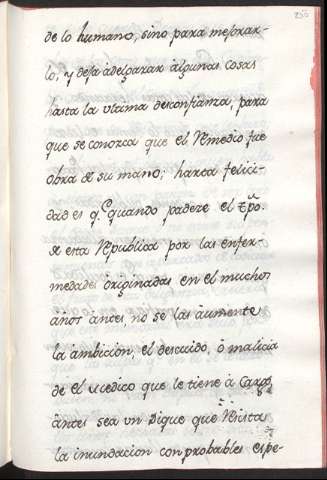 de lo humano, sino para mejorar-
lo; y deja adelgazar algunas cosas
hasta la vltima desconfianza, para
que se conozca que el Remedio fue
obra de su mano; harta felici-
dad es q.e quando padeze el Cpo.
de esta Republica por las enfer-
medades originadas en el muchos
años antes, no se las aumente
la ambicion, el descuido, ò malicia
de el Medico que le tiene à cargo,
àntes sea vn Dique que Resista
la inundacion con probables espe-